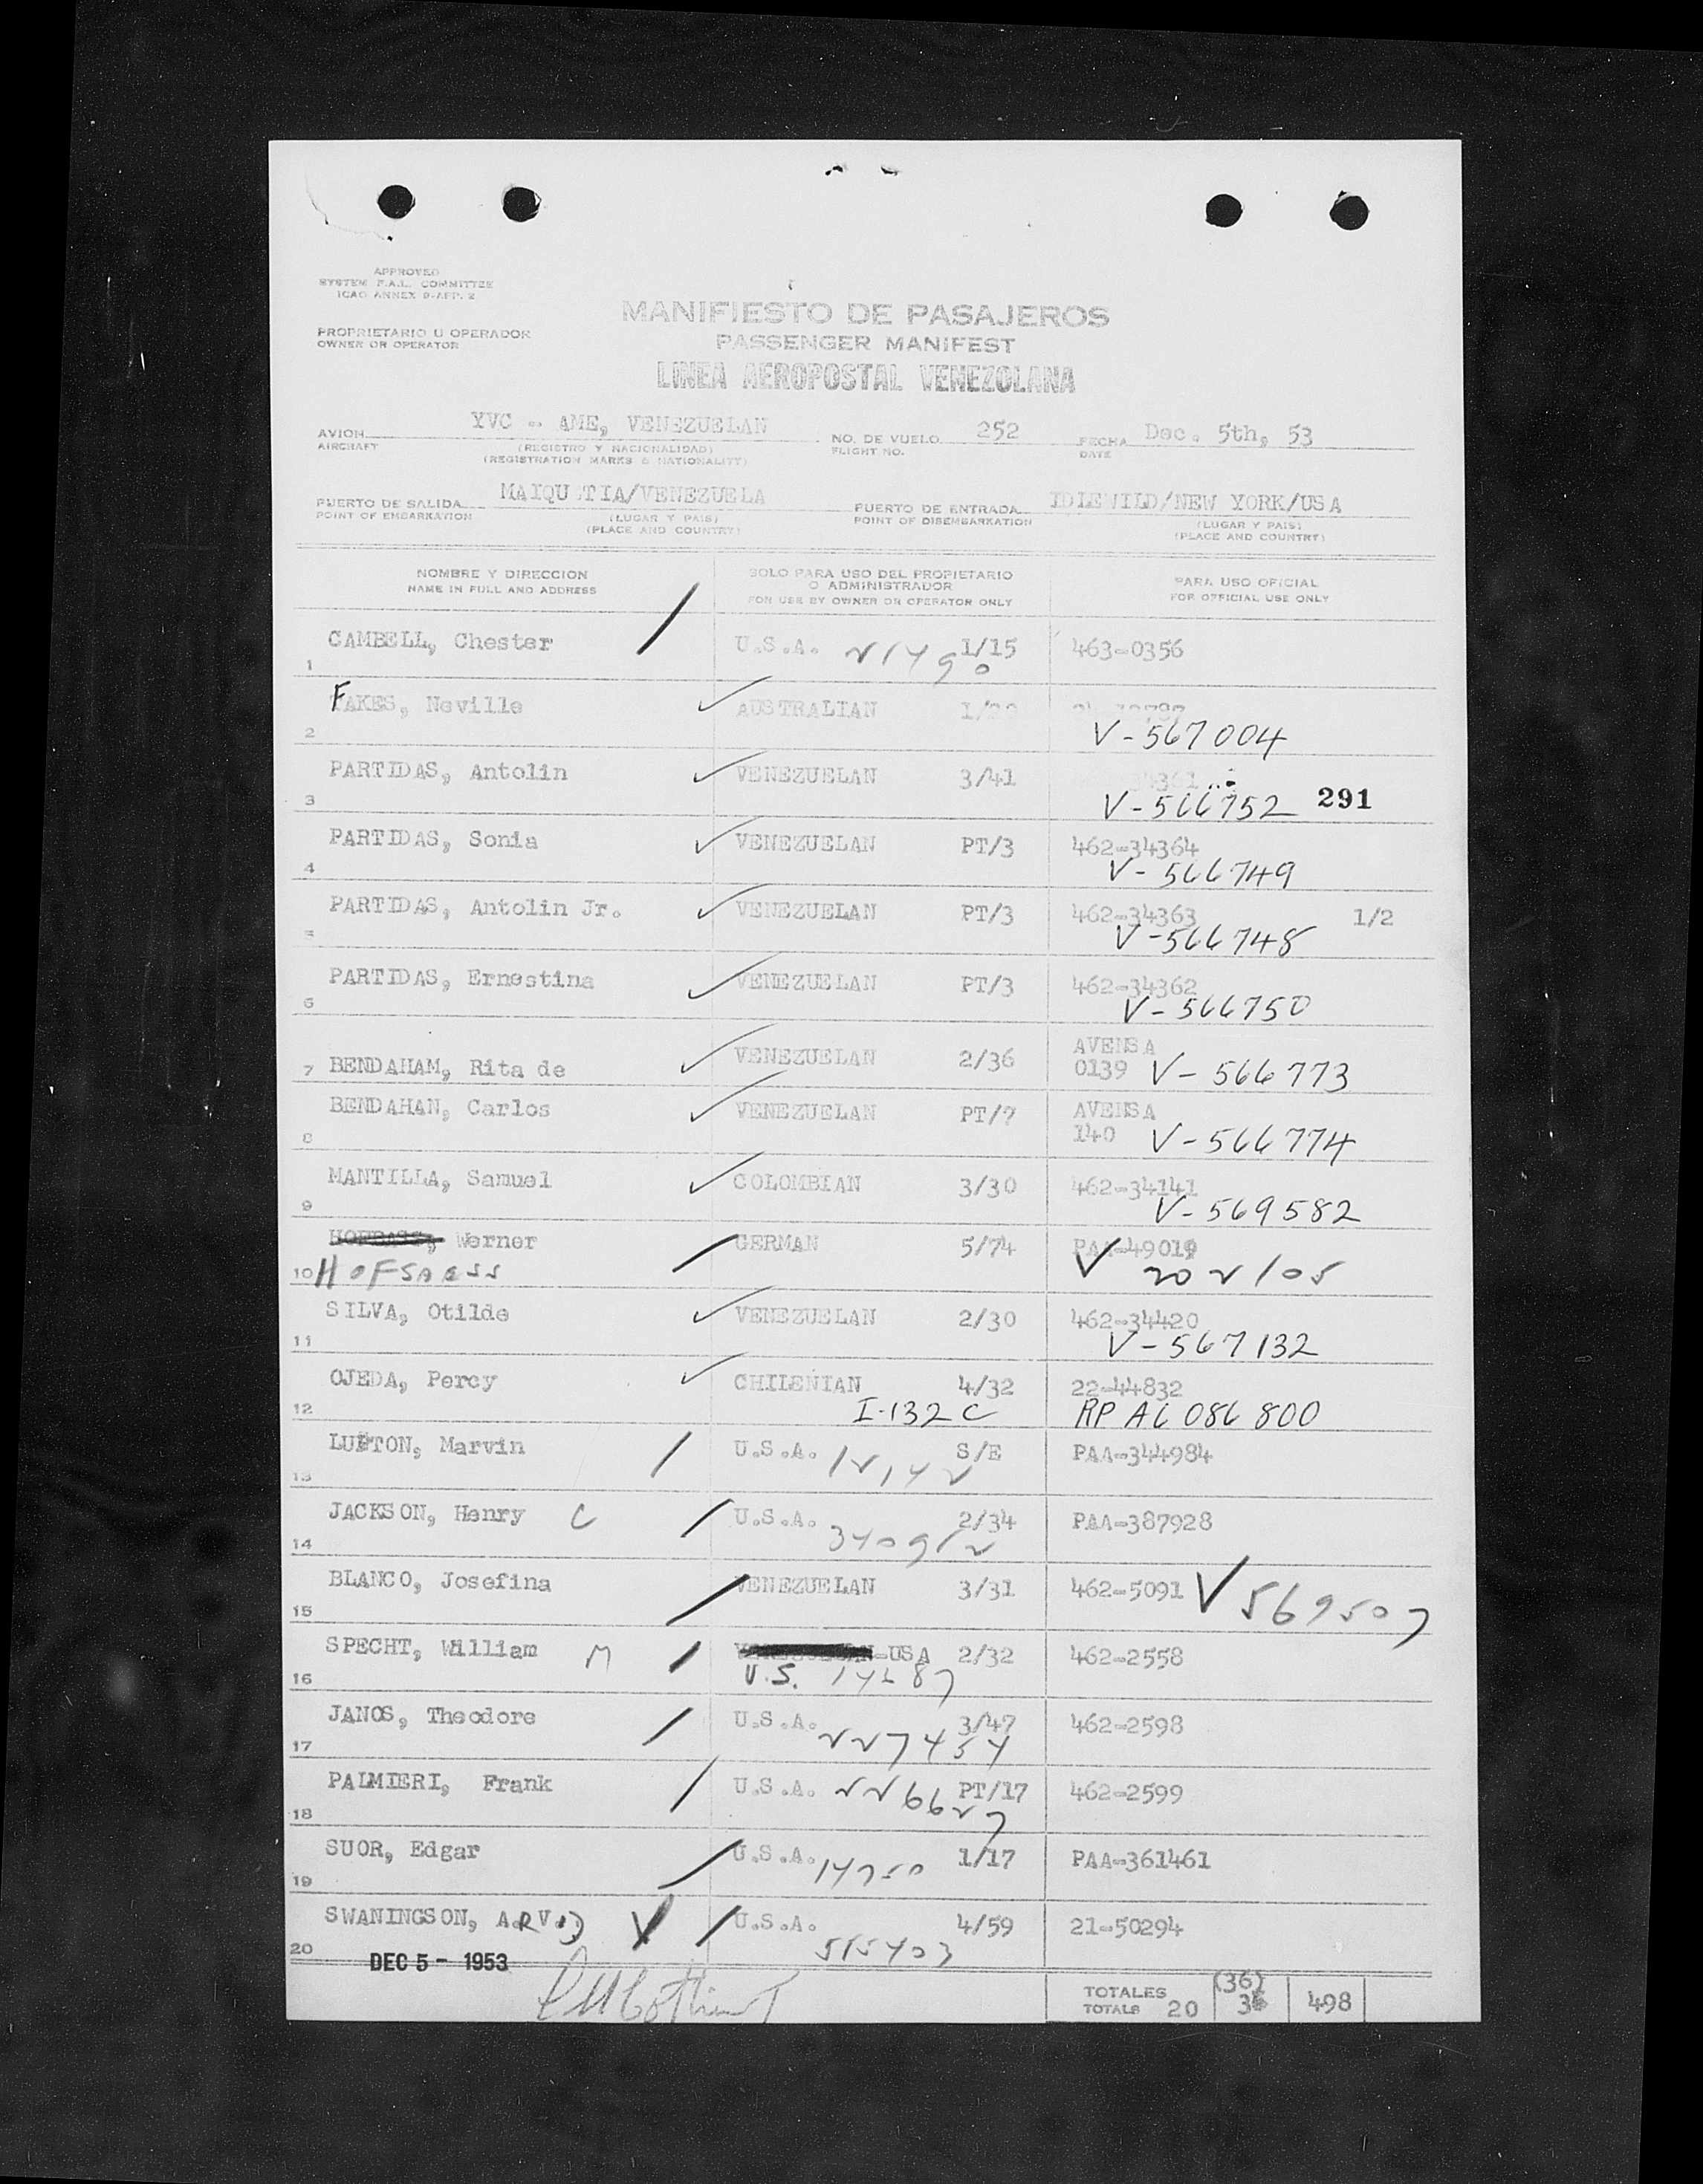 APPROVED
SYSTEM F.A.L. COMMITTEE
ICAO ANNEX 9-APP. 2
PROPRIETARIO U OPERADOR
OWNER OR OPERATOR
MANIFIESTO DE PASAJEROS
PASSENGER MANIFEST
LINEA AEROPOSTAL VENEZOLANA
AVION YVC - AME, VENEZUELAN NO. DE VUELO 252 FECHA Dec. 5th, 53
AIRCRAFT (REGISTRO Y NACIONALIDAD) FLIGHT NO. DATE
(REGISTRATION MARKS & NATIONALITY)
PUERTO DE SALIDA MAIQU TIA/VENEZUELA PUERTO DE ENTRADA IDLEWILD/NEW YORK/USA
POINT OF EMBARKATION (LUGAR Y PAIS) POINT OF DISEMBARKATION (LUGAR Y PAIS)
(PLACE AND COUNTRY) (PLACE AND COUNTRY)
NOMBRE Y DIRECCION SOLO PARA USO DEL PROPIETARIO PARA USO OFICIAL
NAME IN FULL AND ADDRESS O ADMINISTRADOR FOR OFFICIAL USE ONLY
FOR USE BY OWNER OR OPERATOR ONLY
CAMBELL, Chester U.S.A. 21490 1/15 463-0356
1
FAKES, Neville AUSTRALIAN
2 V-567004
PARTIDAS, Antolin VENEZUELAN 3/41
3 V-566752 291
PARTIDAS, Sonia VENEZUELAN PT/3 462-34364
4 V-566749
PARTIDAS, Antolin Jr. VENEZUELAN PT/3 462-34363 1/2
5 V-566748
PARTIDAS, Ernestina VENEZUELAN PT/3 462-34362
6 V-566750
VENEZUELAN 2/36 AVENSA
7 BENDAHAM, Rita de 0139 V-566773
BENDAHAN, Carlos VENEZUELAN PT/7 AVENSA
8 140 V-566774
MANTILLA, Samuel COLOMBIAN 3/30 462-34141
9 V-569582
Werner GERMAN 5/74 PAA-49019
10 HOFSAESS V 202105
SILVA, Otilde VENEZUELAN 2/30 462-34420
11 V-567132
OJEDA, Percy CHILENIAN 4/32 22-44832
12 I-132C RP A6 086 800
LUPTON, Marvin U.S.A. 12142 S/E PAA-344984
13
JACKSON, Henry C U.S.A. 2/34 PAA-387928
14 340912
BLANCO, Josefina VENEZUELAN 3/31 462-5091 V 569507
15
SPECHT, William M -USA 2/32 462-2558
16 U.S.
JANOS, Theodore U.S.A. 3/47 462-2598
17 227454
PALMIERI, Frank U.S.A. 226627 PT/17 462-2599
18
SUOR, Edgar U.S.A. 14750 1/17 PAA-361461
19
SWANINGSON, ARVID U.S.A. 4/59 21-50294
20 515403
DEC 5 - 1953
TOTALES (36)
TOTALS 20 498